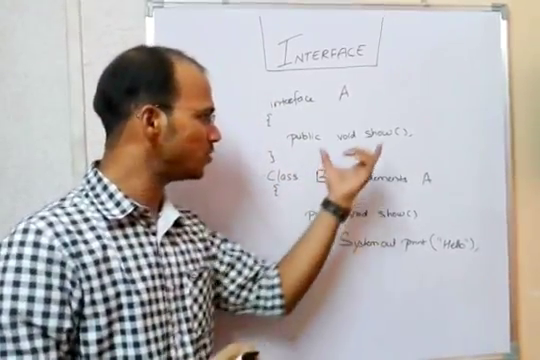 INTERFACE
interface A
{
public void show();
}
Class ements A
{
void show()
System out print ("Hello");